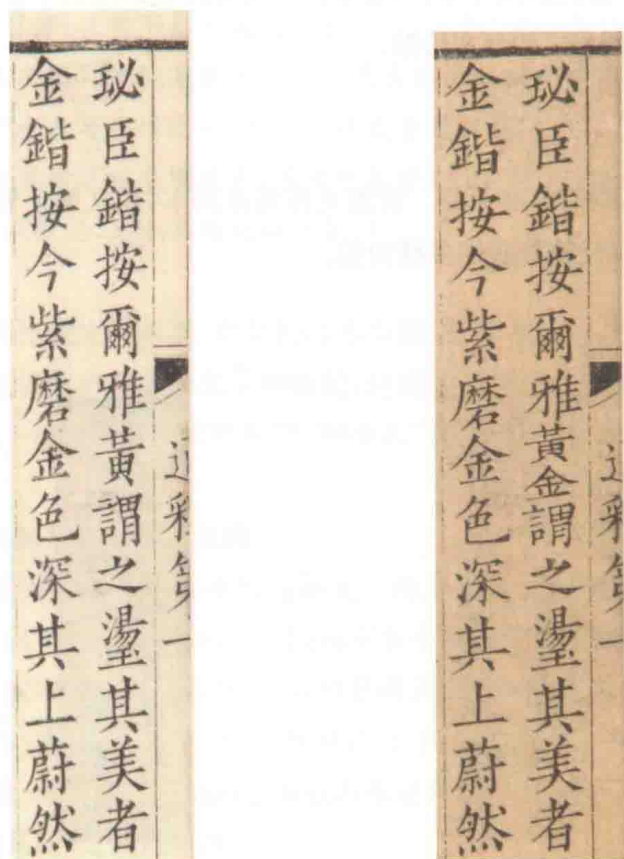 珌臣鍇按爾雅黃謂之璗其美者
金鍇按今紫磨金色深其上蔚然
珌臣鍇按爾雅黃金謂之璗其美者
金鍇按今紫磨金色深其上蔚然